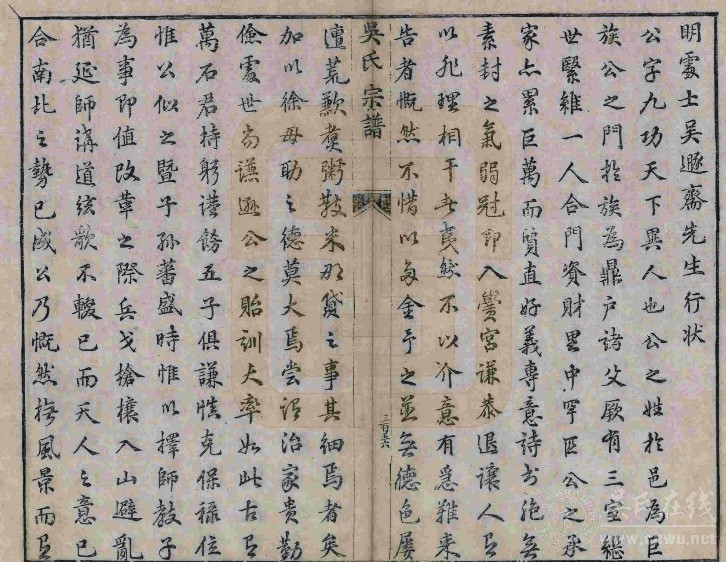 明處士吳遯齋先生行狀
公字九功天下異人也公之姓於邑為巨
族公之門於族為鼎戶諸父厥有三室繼
世繫維一人合門資財里中罕匹公之承
家亦累巨萬而質直好義專意詩書絕無
素封之氣弱冠即入黌宮謙恭退讓人有
以非理相干者夷然不以介意有急難來
告者慨然不惜以多金予之並無德色屢
吳氏宗譜
三百五六
遭荒歉煑粥散米那貸之事其細焉者矣
加以徐母助之德莫大焉嘗謂治家貴勤
儉處世尚謙遜公之貽訓大率如此古有
萬石君持躬謹飭五子俱謙慎克保祿位
惟公似之暨子孫蕃盛時惟以擇師教子
為事即值改革之際兵戈搶攘入山避亂
猶延師講道弦歌不輟已而天人之意已
合南北之勢已成公乃慨然撫風景而有
吳氏在线
www.cnwu.net